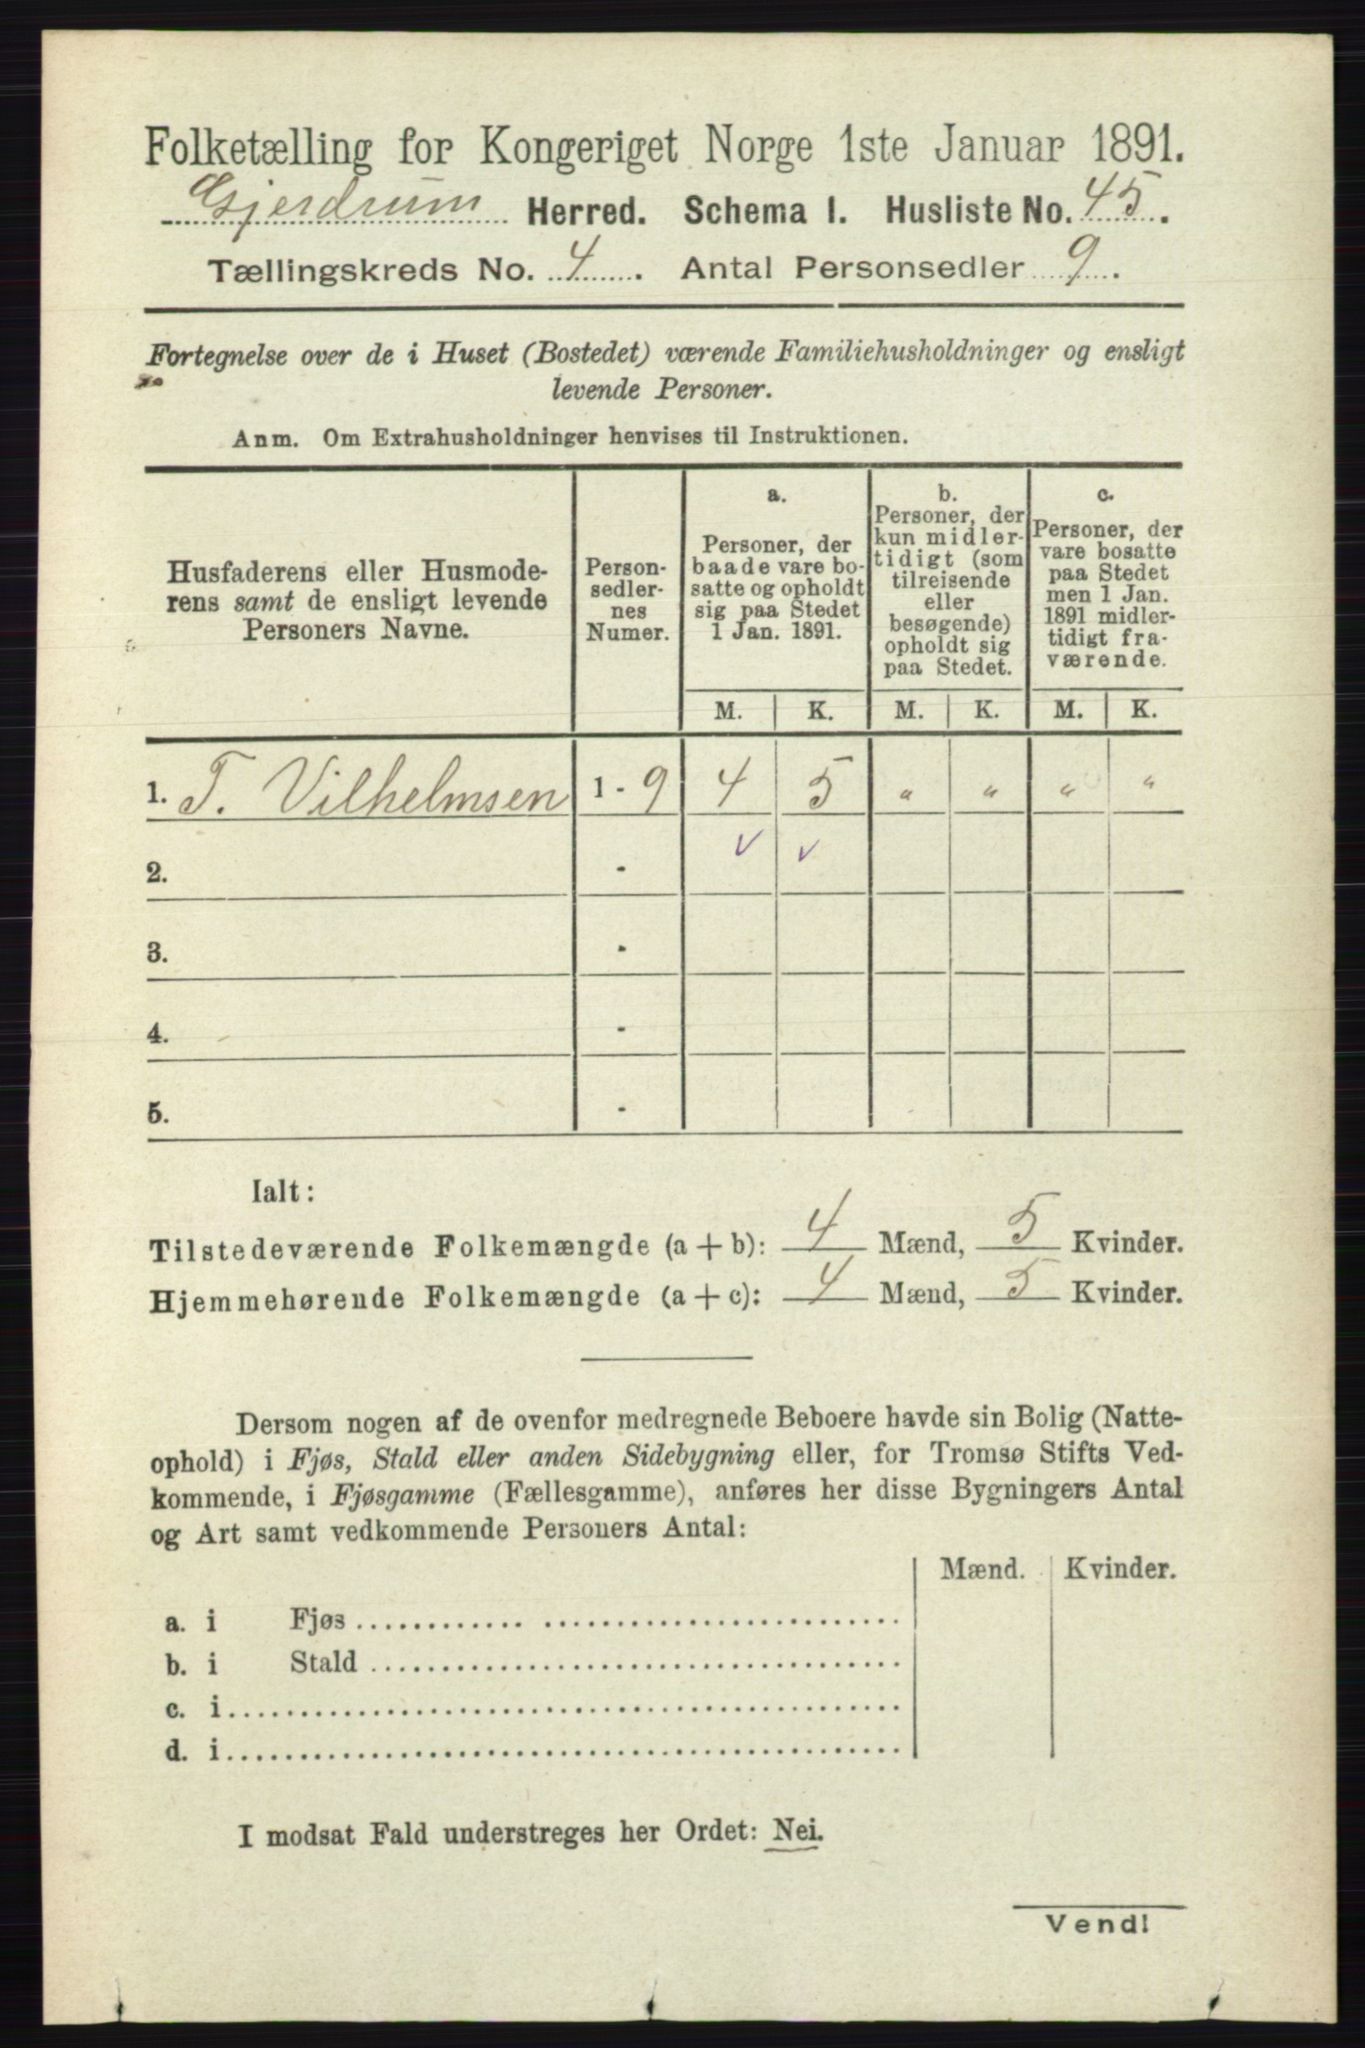 Folketælling for Kongeriget Norge 1ste Januar 1891.
Gjerdrum Herred. Schema I. Husliste No. 45.
Tællingskreds No. 4. Antal Personsedler 9.
Fortegnelse over de i Huset (Bostedet) værende Familiehusholdninger og ensligt
levende Personer.
Anm. Om Extrahusholdninger henvises til Instruktionen.
Husfaderens eller Husmode-
rens samt de ensligt levende
Personers Navne.
Person-
sedler-
nes
Numer.
a.
Personer, der
baade vare bo-
satte og opholdt
sig paa Stedet
1 Jan. 1891.
b.
Personer, der
kun midler-
tidigt (som
tilreisende
eller
besøgende)
opholdt sig
paa Stedet.
c.
Personer, der
vare bosatte
paa Stedet
men 1 Jan.
1891 midler-
tidigt fra-
værende.
M. K. M. K. M. K.
1. T. Vilhelmsen 1 - 9 4 5 " " " "
2. - v v
3. -
4. -
5. -
Ialt:
Tilstedeværende Folkemængde (a + b): 4 Mænd, 5 Kvinder.
Hjemmehørende Folkemængde (a + c): 4 Mænd, 5 Kvinder.
Dersom nogen af de ovenfor medregnede Beboere havde sin Bolig (Natte-
ophold) i Fjøs, Stald eller anden Sidebygning eller, for Tromsø Stifts Ved-
kommende, i Fjøsgamme (Fællesgamme), anføres her disse Bygningers Antal
og Art samt vedkommende Personers Antal:
Mænd. Kvinder.
a. i Fjøs
b. i Stald
c. i
d. i
I modsat Fald understreges her Ordet: Nei.
Vend!